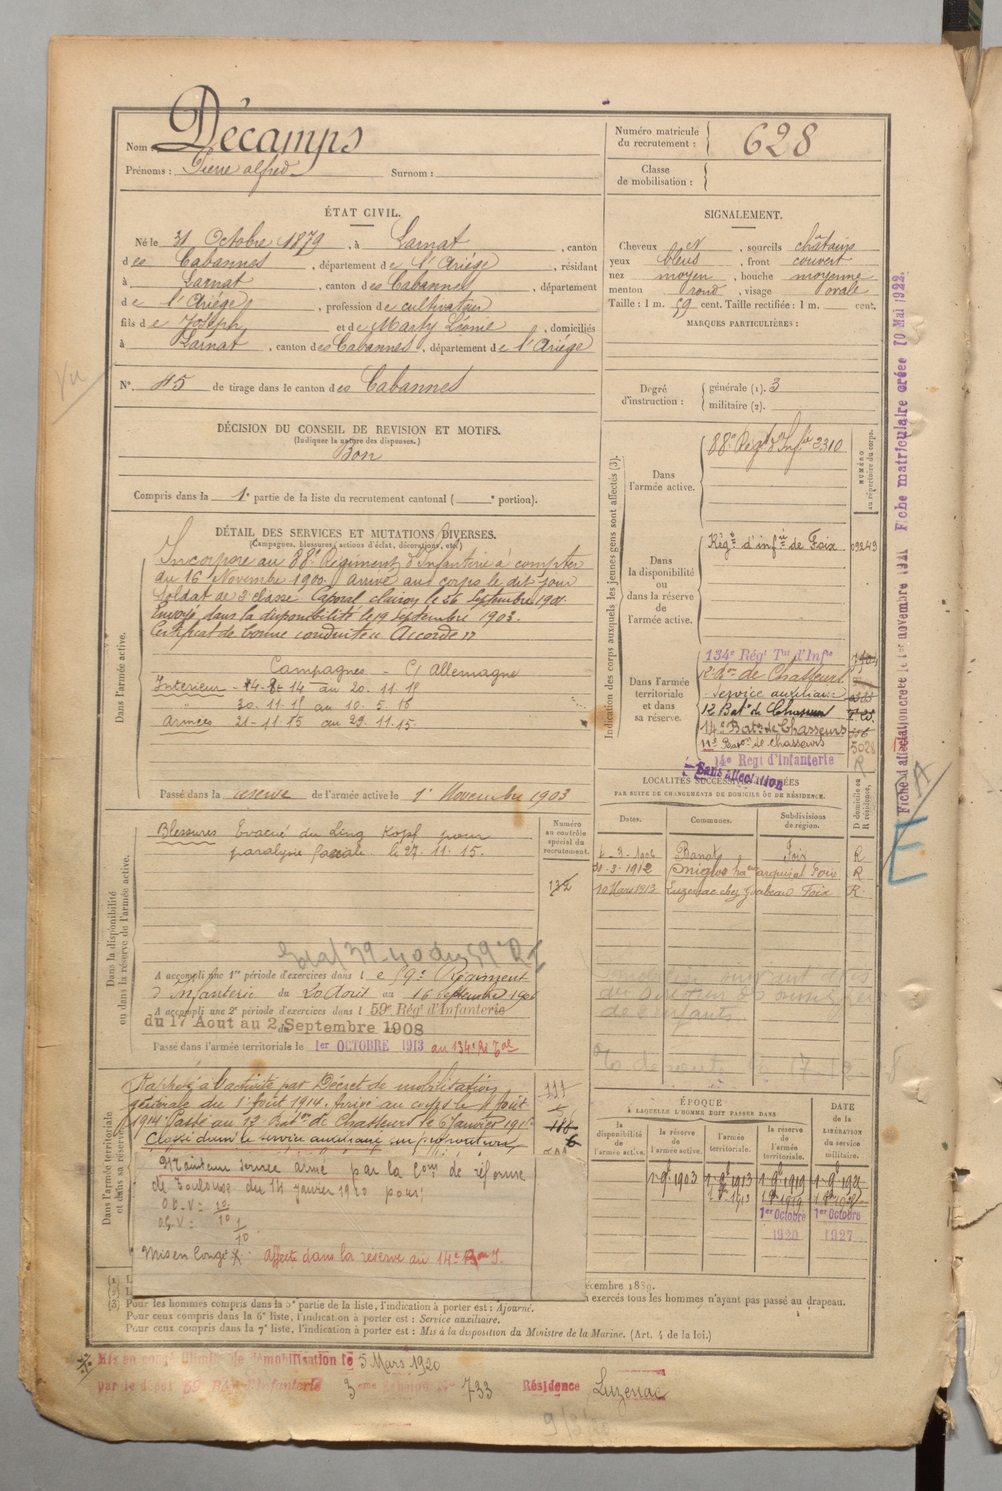 Nom Décamps
Prénoms : Pierre alfred Surnom :
Numéro matricule du recrutement : 628
Classe de mobilisation :
ÉTAT CIVIL.
Né le 31 Octobre 1879, à Larnat, canton
des Cabannes, département de l'Ariége, résidant
à Larnat, canton des Cabannes, département
de l'Ariége, profession de cultivateur
fils de Joseph et de Marty Léonie, domiciliés
à Larnat, canton des Cabannes, département de l'Ariége
N° 45 de tirage dans le canton des Cabannes
SIGNALEMENT.
Cheveux et, sourcils châtains
yeux bleus, front couvert
nez moyen, bouche moyenne
menton rond, visage ovale
Taille : 1 m. 59 cent. Taille rectifiée : 1 m. cent.
MARQUES PARTICULIÈRES :
Degré d'instruction : générale (1). 3
militaire (2).
DÉCISION DU CONSEIL DE REVISION ET MOTIFS.
(Indiquer la nature des dispenses.)
Bon
Compris dans la 1e partie de la liste du recrutement cantonal ( e portion).
DÉTAIL DES SERVICES ET MUTATIONS DIVERSES.
(Campagnes, blessures, actions d'éclat, décorations, etc.)
Dans l'armée active.
Incorporé au 88e Régiment d'Infanterie à compter
du 16 Novembre 1900. Arrivé au corps le dit jour
Soldat de 2e classe. Caporal clairon le 26 Septembre 1901.
Envoyé dans la disponibilité le 19 Septembre 1903.
Certificat de bonne conduite « Accordé »
Campagnes - C/ Allemagne
Intérieur - 14-8-14 au 20.11.15
" 30.11.15 au 10.5.16
Armées 21-11-15 au 29.11.15.
Passé dans la réserve de l'armée active le 1er Novembre 1903
Indication des corps auxquels les jeunes gens sont affectés (3).
NUMÉRO au répertoire du corps.
Dans l'armée active.
88e Régt d'Infie 2310
Dans la disponibilité ou dans la réserve de l'armée active.
Régt d'infie de Foix 09249
Dans l'armée territoriale et dans sa réserve.
134e Régt Tal d'Infie
12e Bon de Chasseurs
Service auxiliaire
12 Baton de Chasseurs
14e Baton de Chasseurs
11e Baton de chasseurs 5028
14e Regt d'Infanterie R
Sans affectation
LOCALITÉS SUCCESSIVES HABITÉES
PAR SUITE DE CHANGEMENTS DE DOMICILE OU DE RÉSIDENCE.
D domicile ou R résidence.
Dates. Communes. Subdivisions de région.
3-1906 Banat Foix R
3-1912 Foix R
10 Mars 1913 Luzenac chez Foix R
Dans la disponibilité ou dans la réserve de l'armée active.
Numéro au contrôle spécial du recrutement.
132
Blessures Evacué du Ling Kopf pour
paralysie faciale le 27.11.15.
A accompli une 1re période d'exercices dans le 59e Régiment
d'Infanterie du 20 Août au 16 Septembre 1906
A accompli une 2e période d'exercices dans l 59e Régt d'Infanterie
du 17 Aout au 2 du Septembre 1908
Passé dans l'armée territoriale le 1er OCTOBRE 1913 au 134e Rt Tal
Dans l'armée territoriale et dans sa réserve.
Rappelé à l'activité par Décret de mobilisation
générale du 1er Août 1914. Arrivé au corps le Août
1914. Passé au 12e Baton de Chasseurs le 6 Janvier 191
Classé dans le service auxiliaire
Maintenu service armé par la Com de réforme
de Toulouse du 14 janvier 1920 pour:
O.D. V= 10/10
O.G. V= 1/10
Mis en congé Affecté dans la réserve au 14e R I.
ÉPOQUE
À LAQUELLE L'HOMME DOIT PASSER DANS
la disponibilité de l'armée active. la réserve de l'armée active. l'armée territoriale. la réserve de l'armée territoriale.
DATE de la LIBÉRATION du service militaire.
1903 1913 1919
1er Octobre 1920 1er Octobre 1927
(1)
(2)
(3) Pour les hommes compris dans la 5e partie de la liste, l'indication à porter est : Ajourné.
Pour ceux compris dans la 6e liste, l'indication à porter est : Service auxiliaire.
Pour ceux compris dans la 7e liste, l'indication à porter est : Mis à la disposition du Ministre de la Marine. (Art. 4 de la loi.)
exercés tous les hommes n'ayant pas passé au drapeau.
Mis en congé illimité de démobilisation le 5 Mars 1920
par le dépôt 59e Rgt d'Infanterie 3eme échelon No 733 Résidence Luzenac
Fiche d'affectation créée le 1er novembre 1921 Fiche matriculaire créée 10 Mai 1922.
Vu